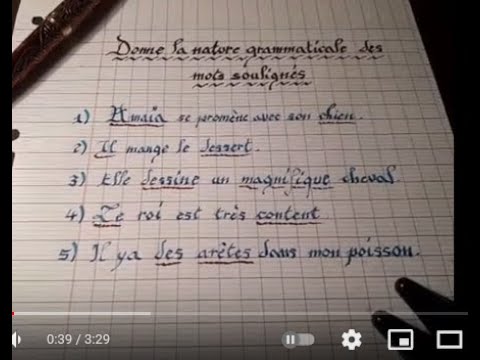 Donne la nature grammaticale des
mots soulignés
1) Amaia se promène avec son chien.
2) Il mange le dessert.
3) Elle dessine un magnifique cheval.
4) Le roi est très content.
5) Il y a des arêtes dans mon poisson.
0:39 / 3:29